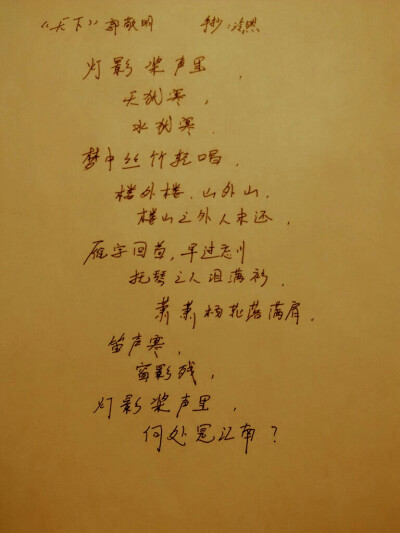 《天下》 郭敬明 手抄：清熙
灯影桨声里，
天犹寒，
水犹寒．
梦中丝竹轻唱，
楼外楼，山外山，
楼山之外人未还．
雁字回首，早过忘川
抚琴之人泪满衫．
萧萧杨花落满肩．
笛声寒，
窗影残，
灯影桨声里，
何处是江南？